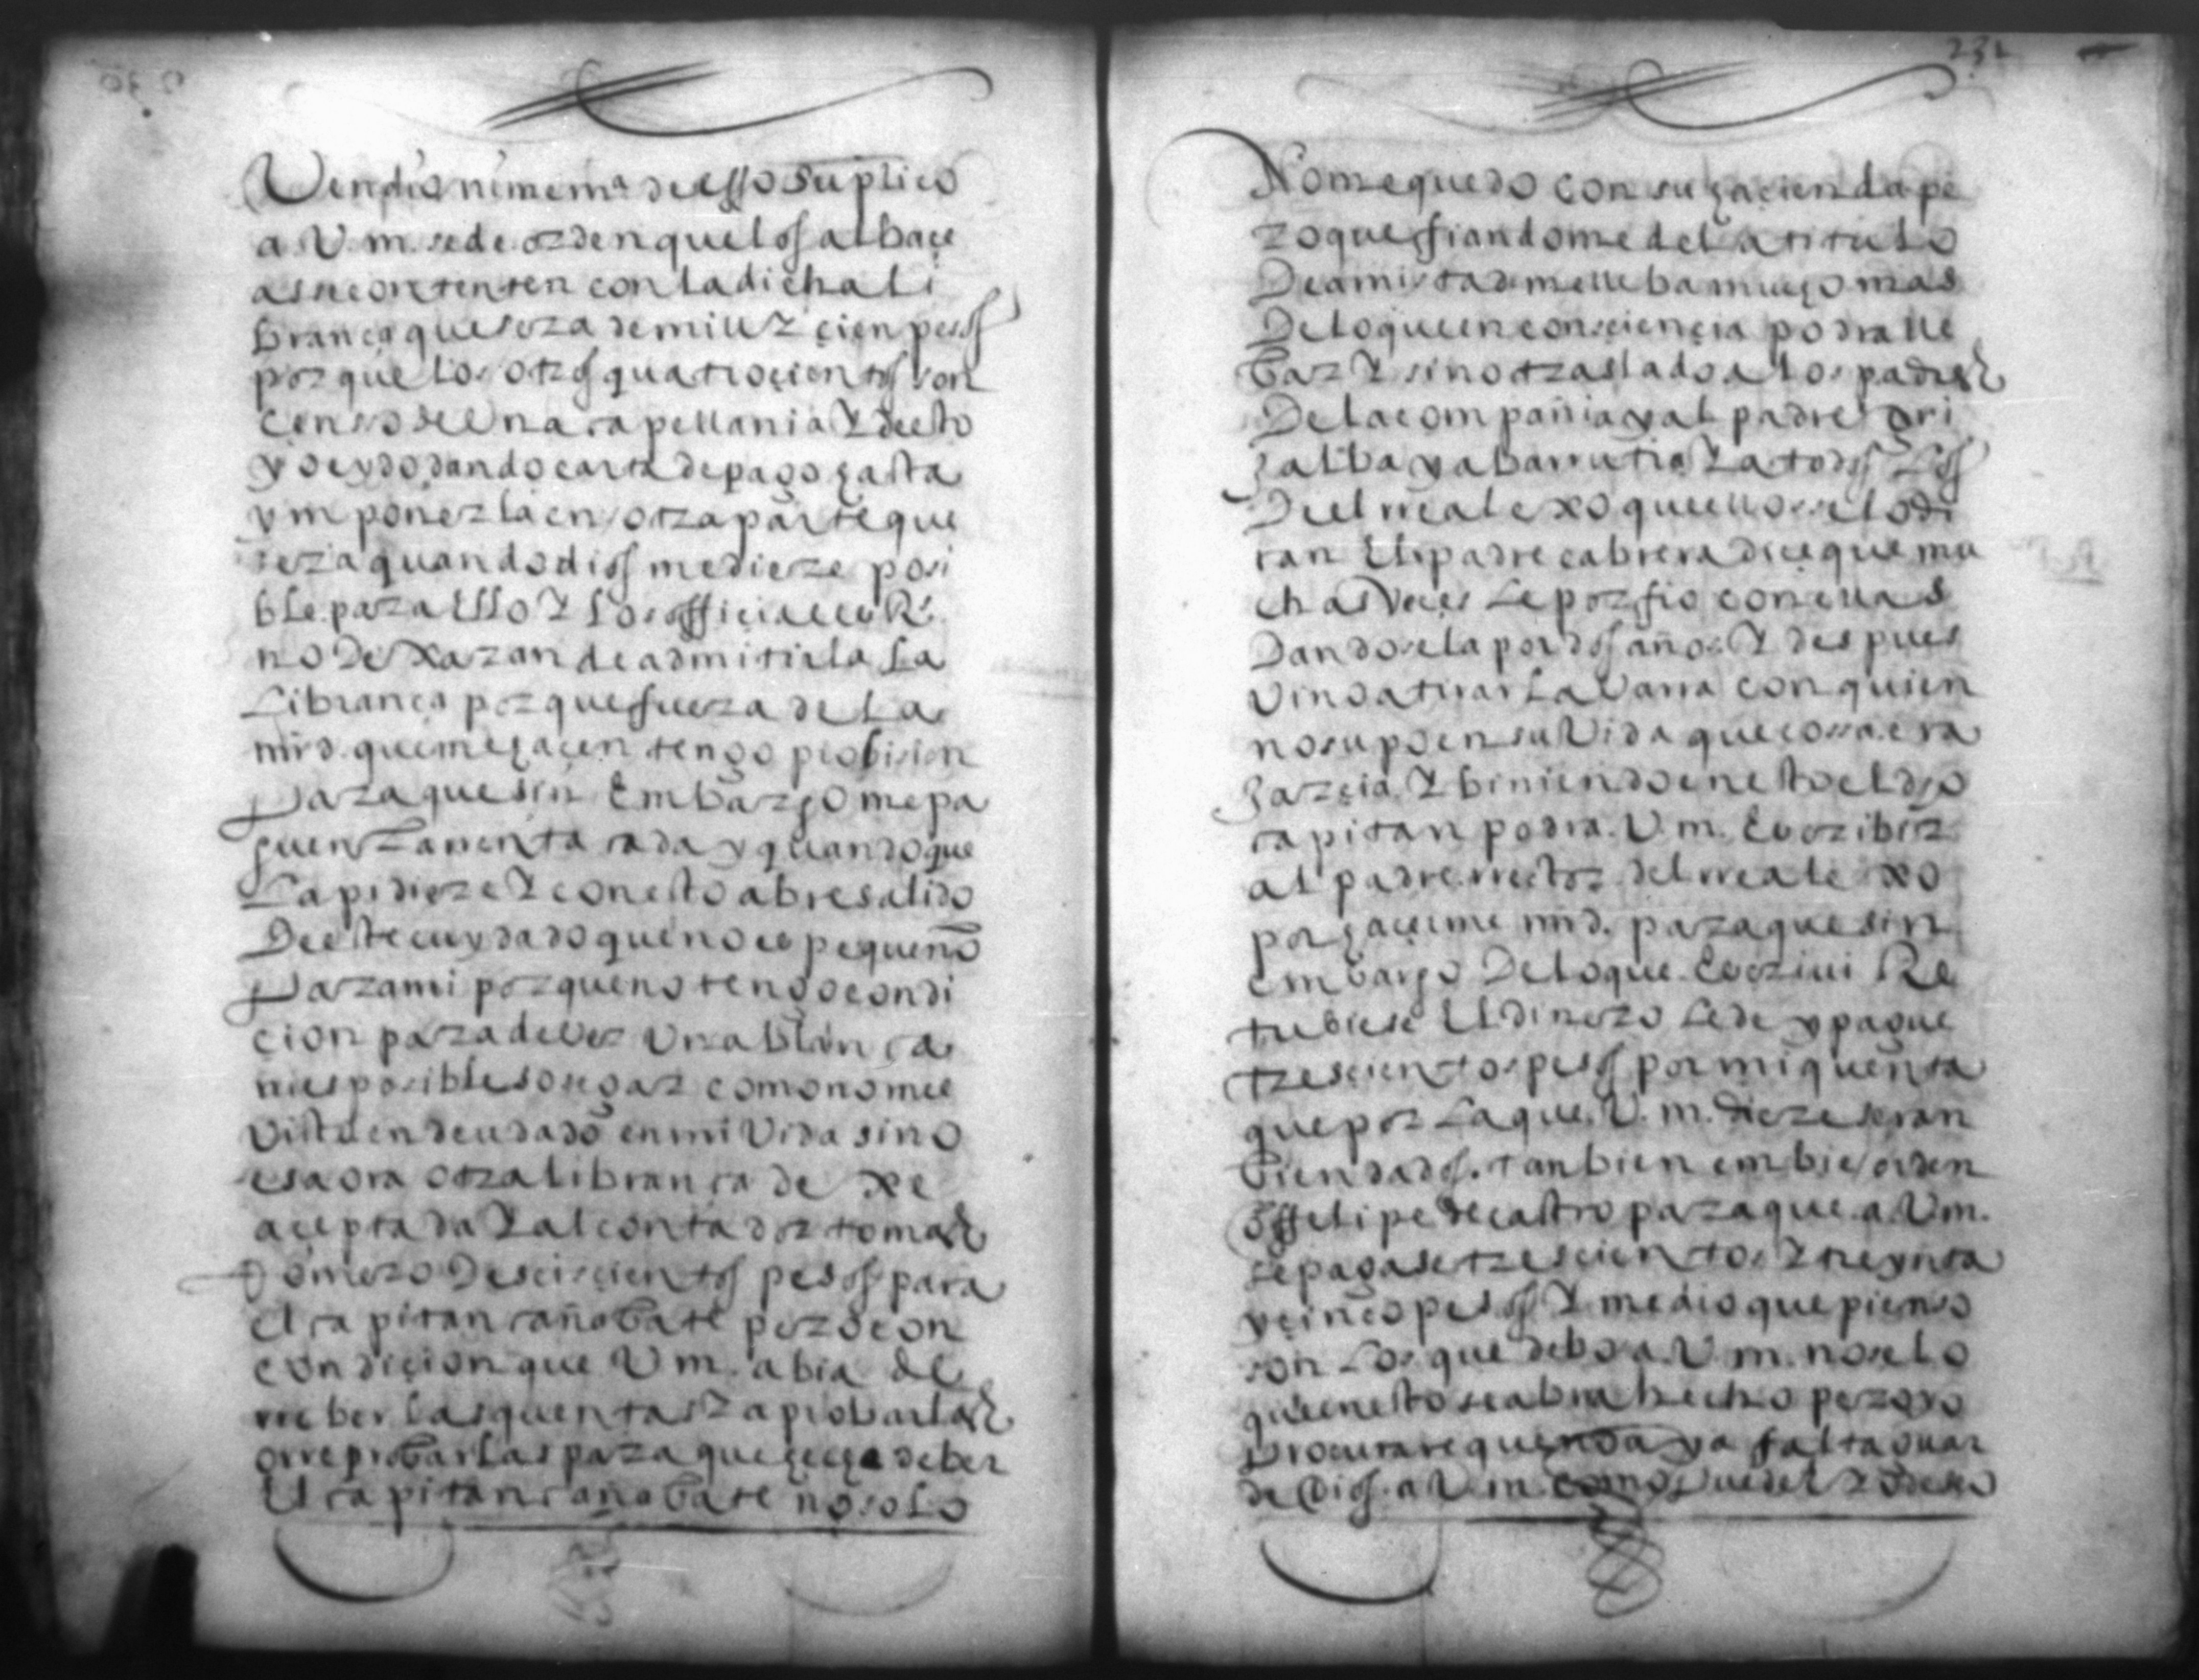 Vendio ni mema de esso suplico
a V.m. se de orden que los albaçe
as se contenten con la dicha li
brança que sera de mill y çien pesos
por que los otros quatroçientos son
çenso de una capellania y de esto
yo e ydo dando carta de pago hasta
ymponerla en otra parte que
sera quando dios me diere posi
ble para ello y los offiçiales Rs.
no dexaran de admitirla la
librança por que fuera de la
mrd. que me haçen tengo probision
para que sin embargo me pa
guen la renta cada y quando que
la pidiere y con esto abre salido
de este cuydado que no es pequeño
para mi por que no tengo condi
çion para dever una blanca
ni es posible sosegar como no me e
visto endeudado en mi vida sino
es aora otra librança dexe
aceptada y al contador tomas
Romero de seisçientos pesos para
el capitan cañobate pero con
condiçion que V m. abia de
rreber las quentas y aprobarlas
o rreprobarlas para que heche de ber
el capitan cañobate no solo
232
No me quedo con su haçienda pe
ro que fiandome del a titulo
de amistad me lleba mucho mas
de lo que en consciençia podra lle
bar y sino traslado a los padres
de la compañia y al padre gri
jalba y a barrutia y a todos los
del rrealexo que ellos se lo di
ran el padre cabrera diçe que mu
chas veçes le porfio con ellas
dandosela por dos años y despues
vino a tirar la varra con quien
no supo en su vida que cossa era
garçia y biniendo en esto el dho
capitan podra V.m. escribir
al padre rrector del rrealexo
por haçerme mrd. para que sin
embargo de lo que escriui Re
tubiese el dinero le de y pague
tresçientos pesos por mi quenta
que por la que V.m. diere seran
bien dados. tanbien embie orden
a felipe de castro para que a Vm.
se pagase tresçientos y treynta
y çinco pesos y medio que pienso
son los que debo a V m. no se lo
que en esto se abra hecho pero yo
procurare que no aya falta guar
de Dios a V.m. como puede y deseo